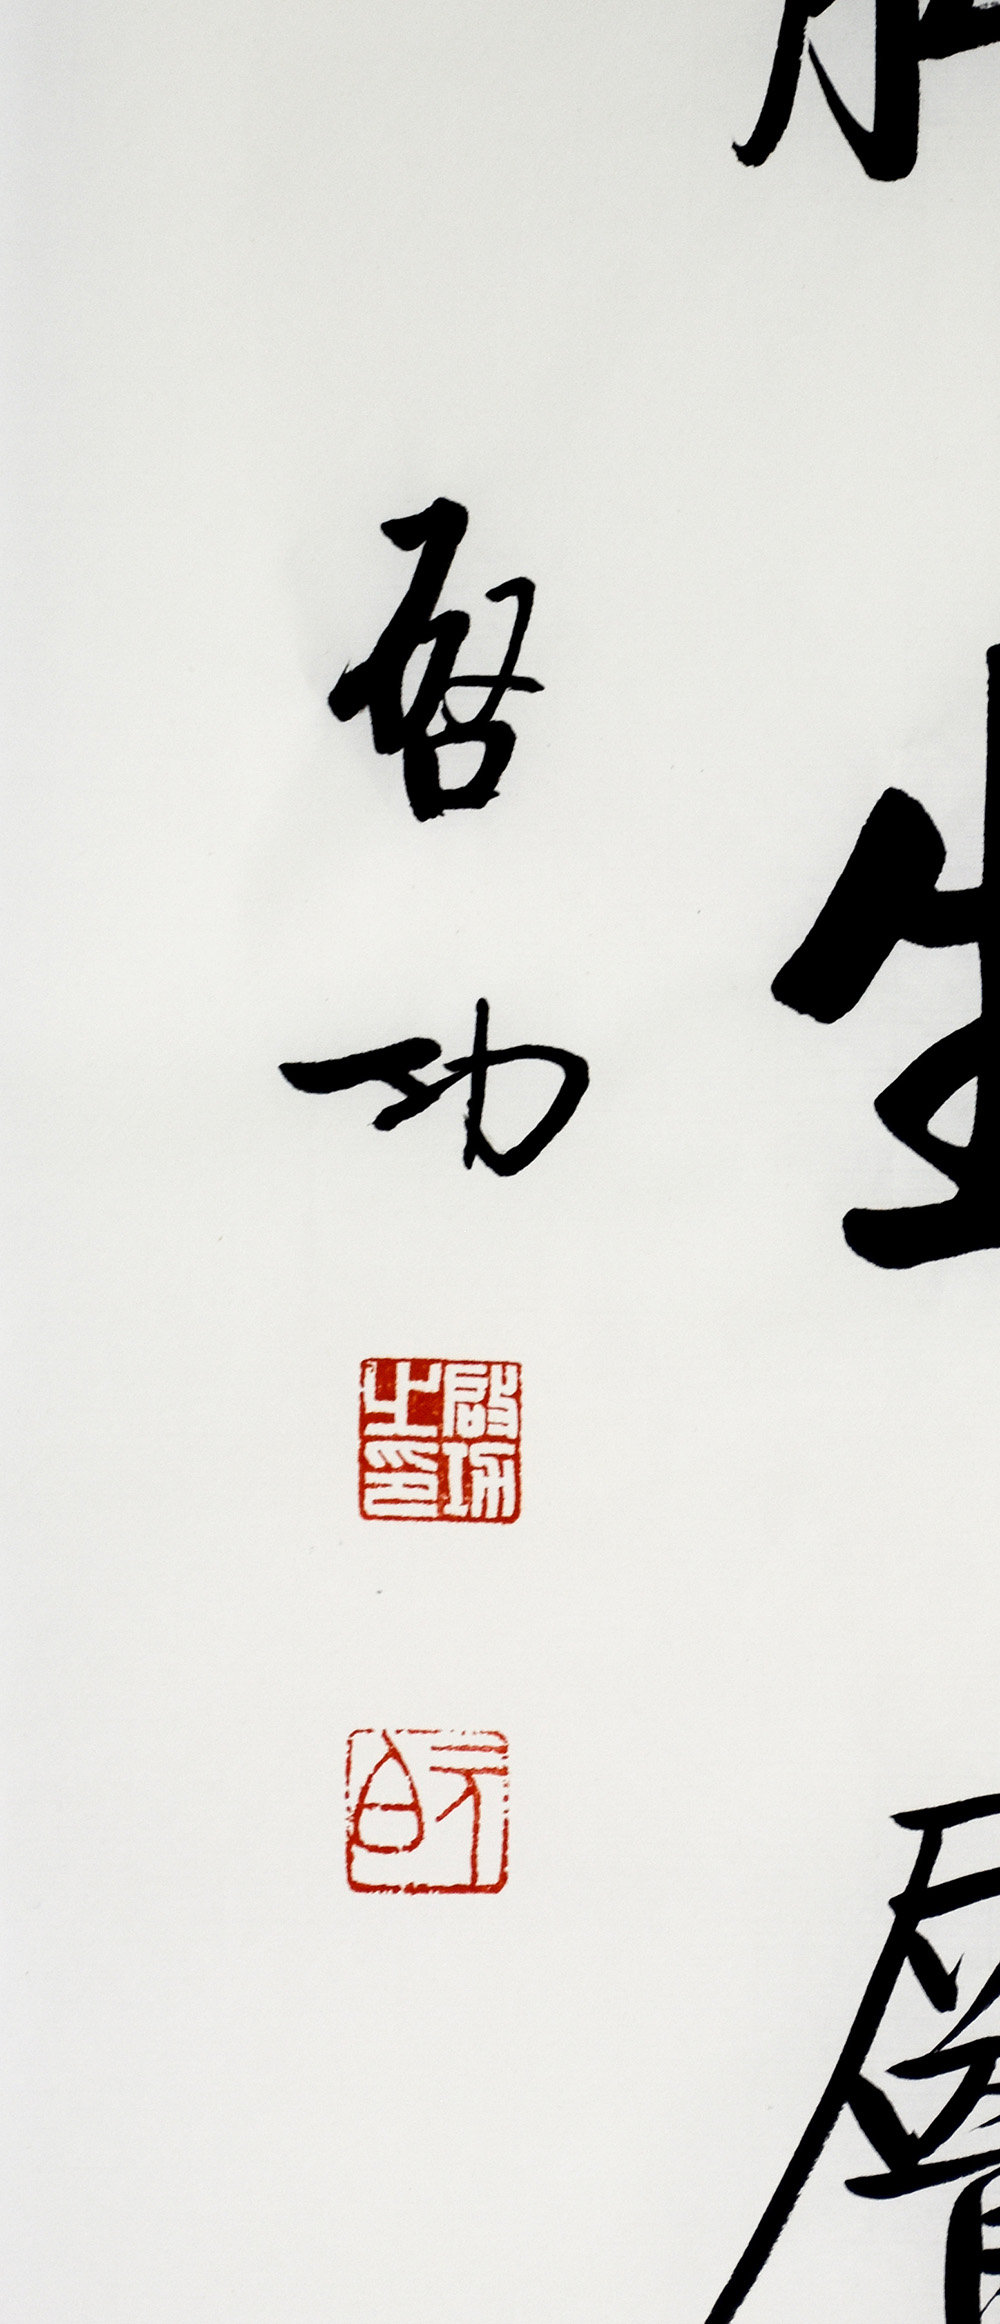 生層
啓功
啟功之印
元白